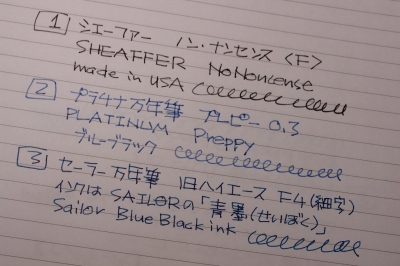 1 シエーファー ノン・ナンセンス 〈F〉
SHEAFFER NoNoncense
made in USA
2 プラチナ万年筆 プレピー 0.3
PLATINUM Preppy
ブルーブラック
3 セーラー万年筆 旧ハイエース F4(細字)
インクはSAILORの「青墨(せいぼく)」
Sailor Blue Black ink